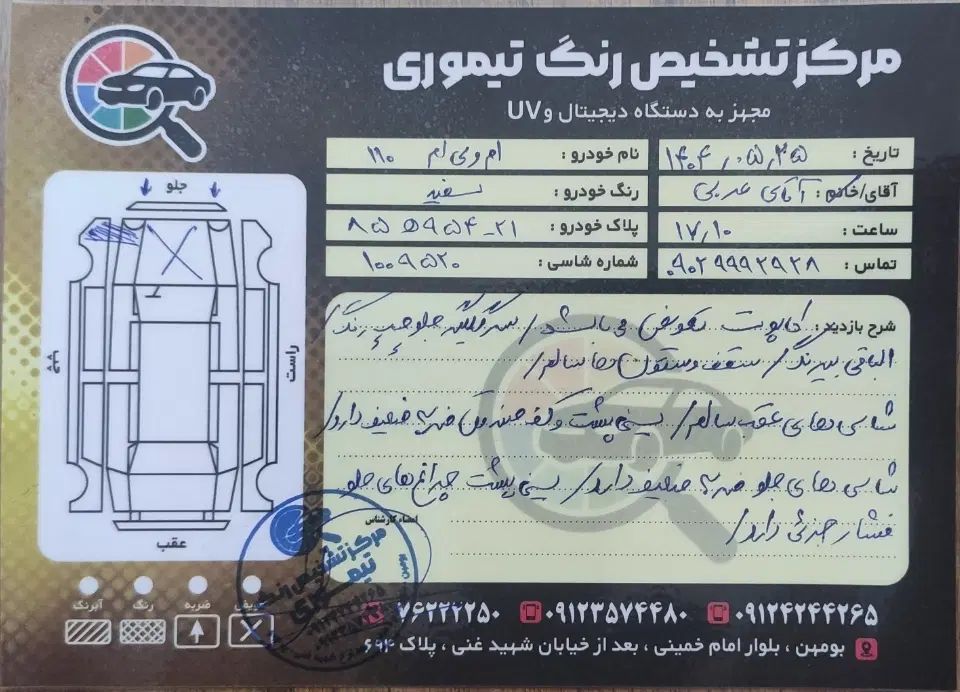 مرکز تشخیص رنگ تیموری
مجهز به دستگاه دیجیتال و UV
تاریخ : ۱۴۰۴٫۰۵٫۲۵
نام خودرو : ام وی ام ۱۱۰
آقای/خانم : آقای عربی
رنگ خودرو : سفید
ساعت : ۱۷٫۱۰
پلاک خودرو : ۲۱ - ۹۵۴ ه ۸۵
تماس : ۰۹۰۲۹۹۹۲۹۲۸
شماره شاسی : ۱۰۰۹۵۲۰
شرح بازدید : کاپوت تعویض می باشد / سرگلگیر جلو چپ رنگ /
الباقی بیرنگ / سقف و ستون ها سالم /
شاسی های عقب سالم / سینی پشت و کف صندوق ضربه خفیف دارد /
شاسی های جلو ضربه خفیف دارد / سینی پشت چراغ های جلو
فشار جزئی دارد /
جلو
چپ
راست
عقب
آبرنگ
رنگ
ضربه
تعویض
امضاء کارشناس
مرکز تشخیص رنگ
۷۶۲۲۲۲۵۰
۰۹۱۲۳۵۷۴۴۸۰
۰۹۱۲۴۲۴۴۲۶۵
بومهن ، بلوار امام خمینی ، بعد از خیابان شهید غنی ، پلاک ۶۹۴